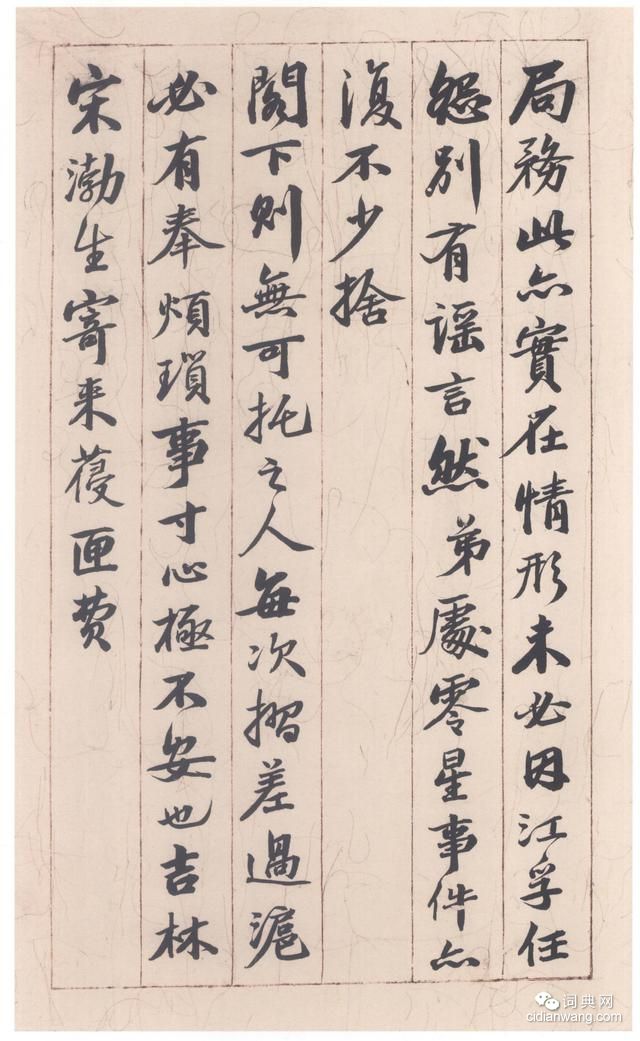 局務此亦實在情形未必因江孚任
怨別有謡言然弟處零星事件亦
復不少捨
閣下則無可托之人每次摺差過滬
必有奉煩瑣事寸心極不安也吉林
宋渤生寄來葠匣费
词典网
cidianwang.com